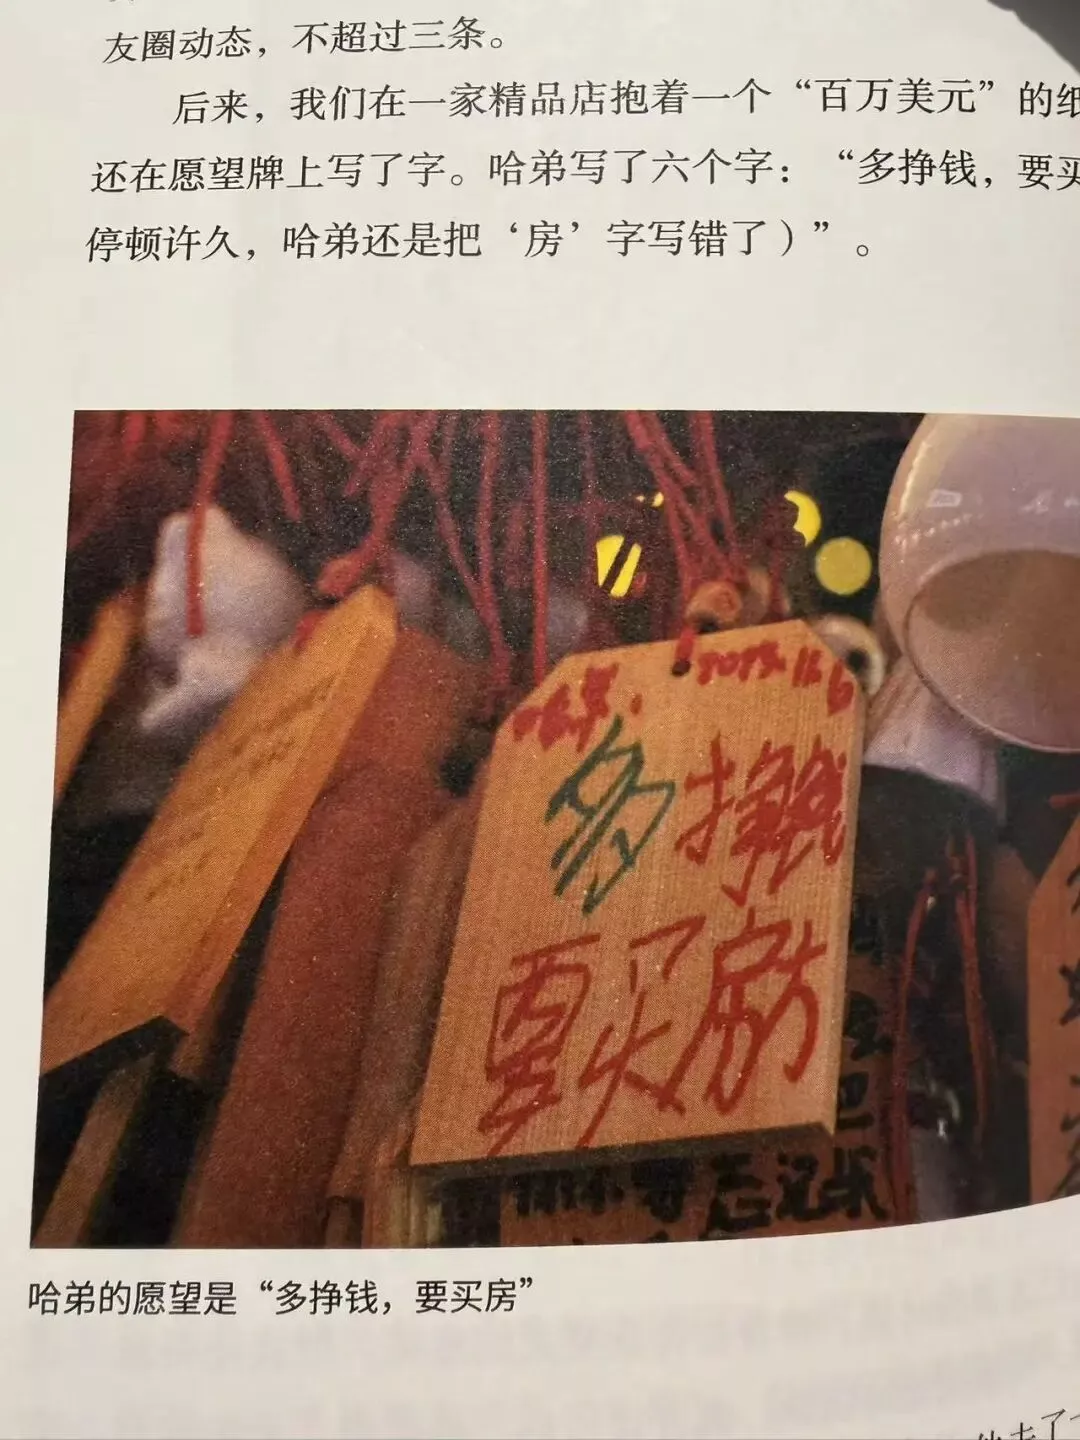 友圈动态，不超过三条。
后来，我们在一家精品店抱着一个“百万美元”的纸
还在愿望牌上写了字。哈弟写了六个字：“多挣钱，要买
停顿许久，哈弟还是把‘房’字写错了）”。
多挣钱
要买房
忘记
哈弟的愿望是“多挣钱，要买房”
他走了